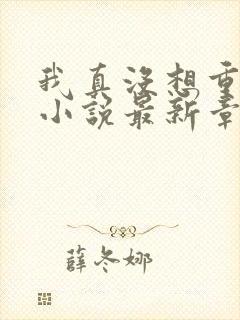 我真没想重
小说最新章
薛冬娜